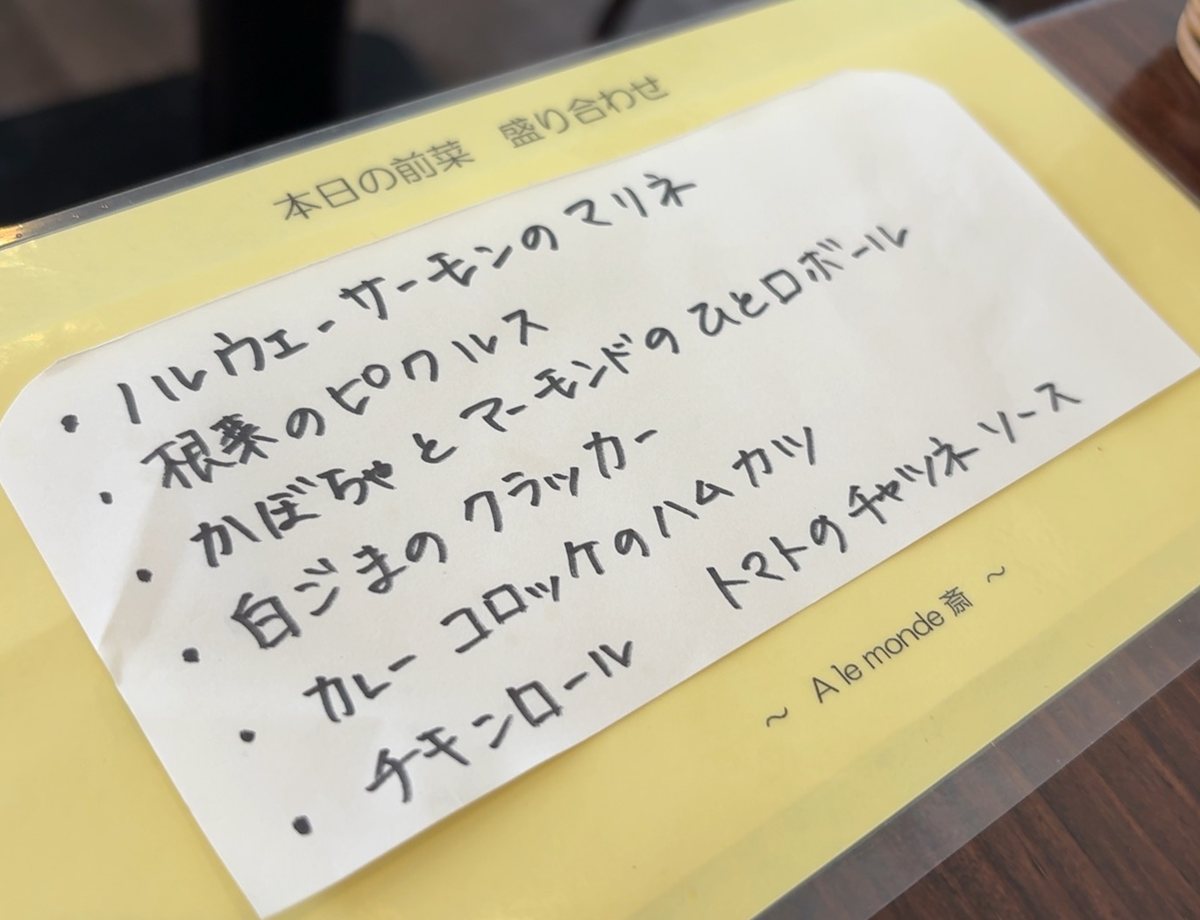 本日の前菜　盛り合わせ
・ノルウェーサーモンのマリネ
・根菜のピクルス
・かぼちゃとアーモンドのひと口ボール
・白ごまのクラッカー
・カレーコロッケのハムカツ
・チキンロール　トマトのチャツネソース
～ A le monde 斎 ～